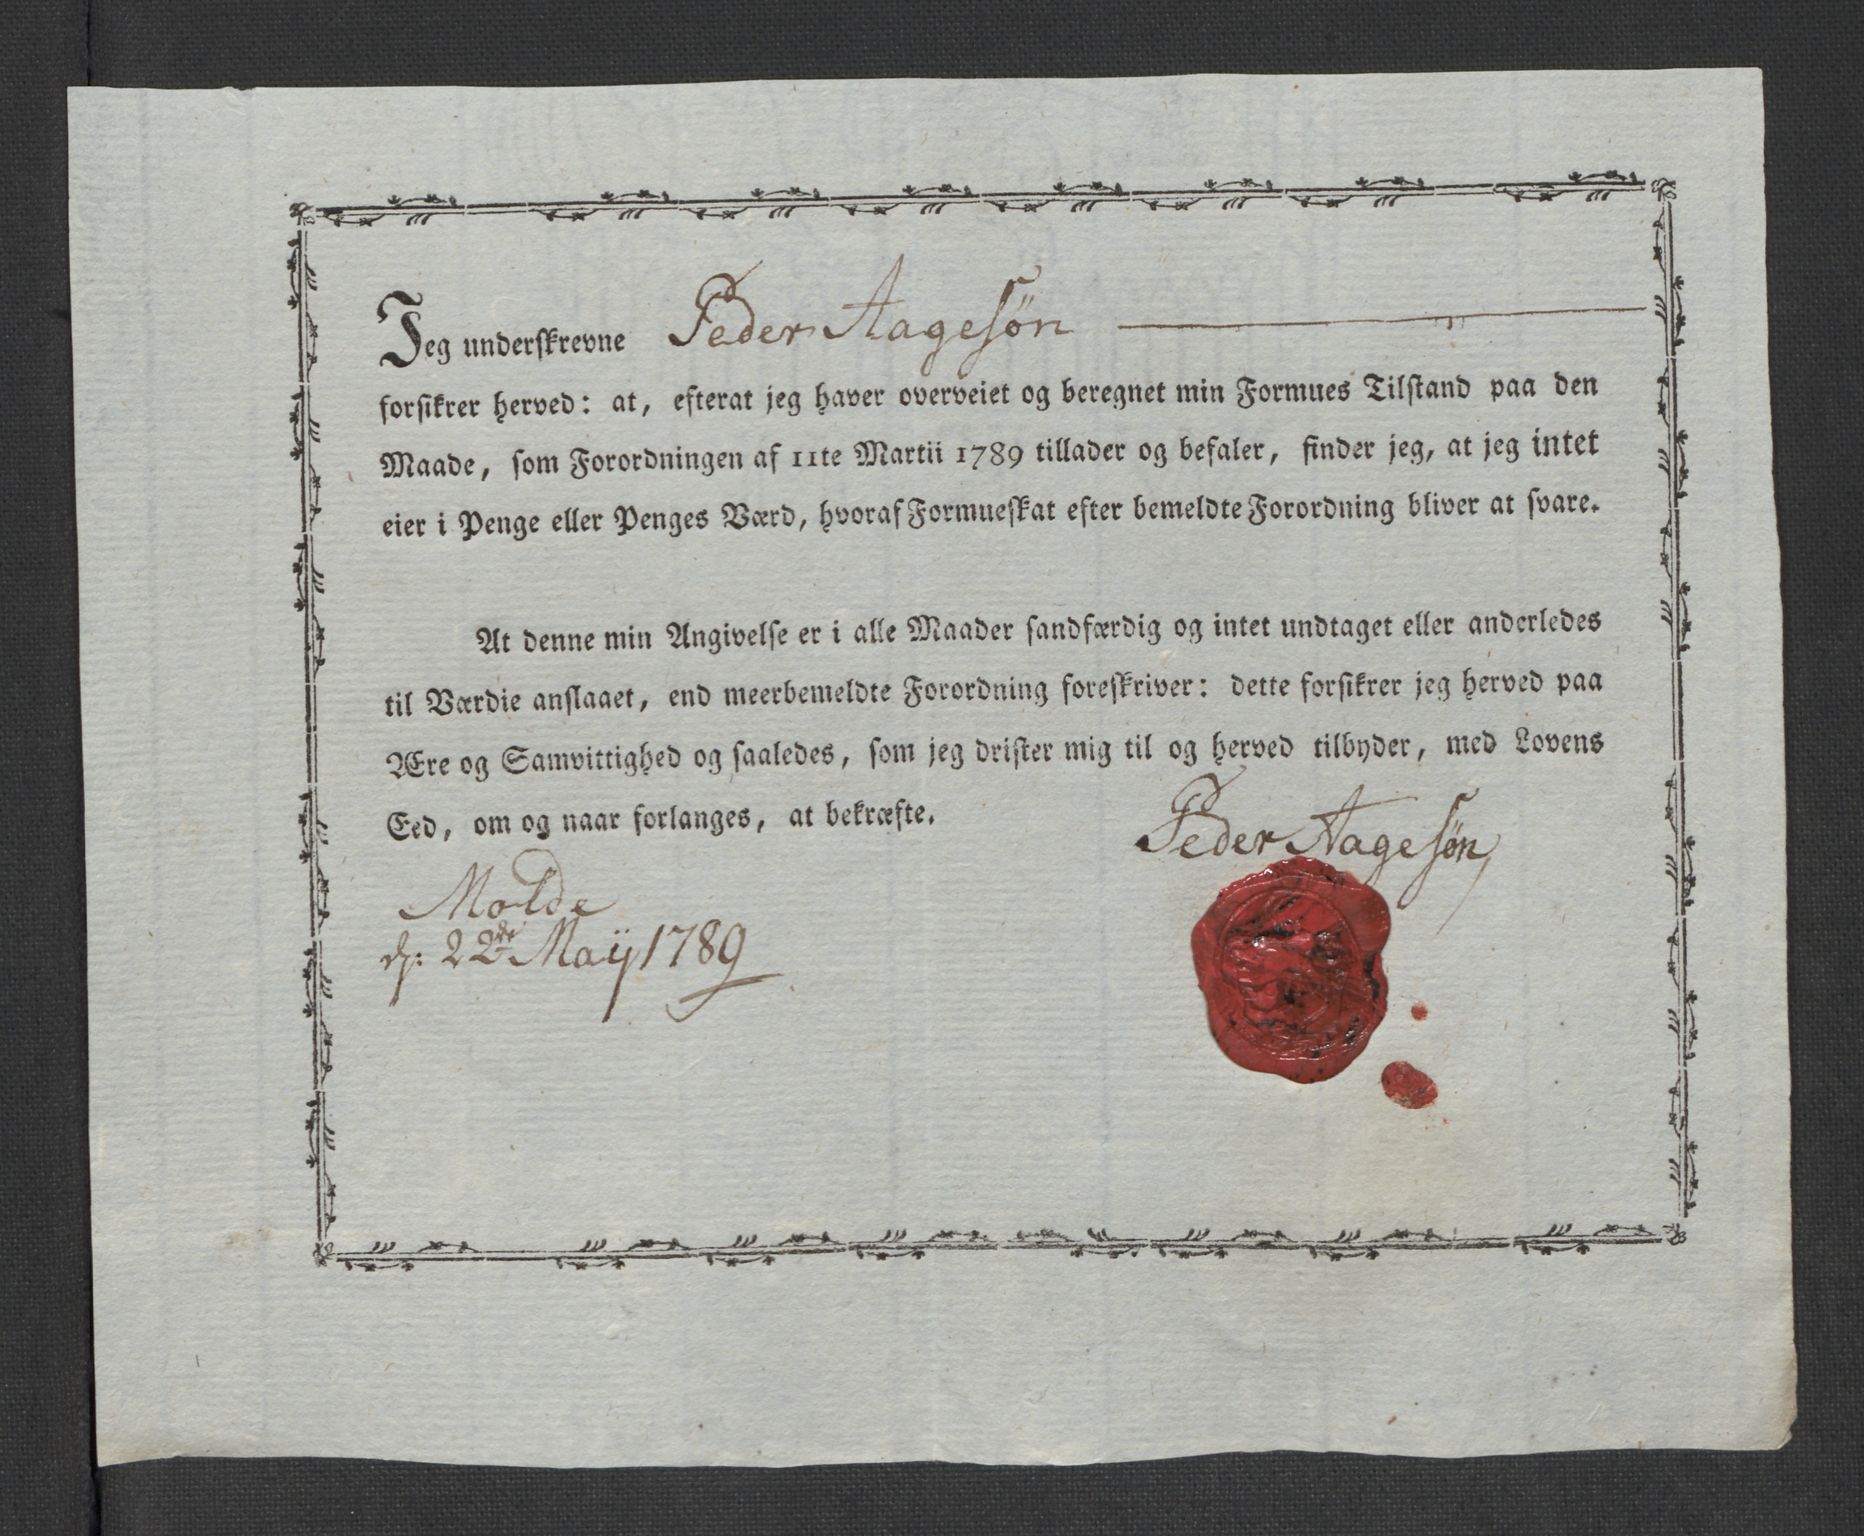 Jeg underskrevne Peder Aagesøn
forsikrer herved: at, efterat jeg haver overveiet og beregnet min Formues Tilstand paa den
Maade, som Forordningen af 11te Martii 1789 tillader og befaler, finder jeg, at jeg intet
eier i Penge eller Penges Værd, hvoraf Formueskat efter bemeldte Forordning bliver at svare.
At denne min Angivelse er i alle Maader sandfærdig og intet undtaget eller anderledes
til Værdie anslaaet, end meerbemeldte Forordning foreskriver: dette forsikrer jeg herved paa
Ære og Samvittighed og saaledes, som jeg drister mig til og herved tilbyder, med Lovens
Eed, om og naar forlanges, at bekræfte.
Peder Aagesøn
Molde
d: 22de Maÿ 1789